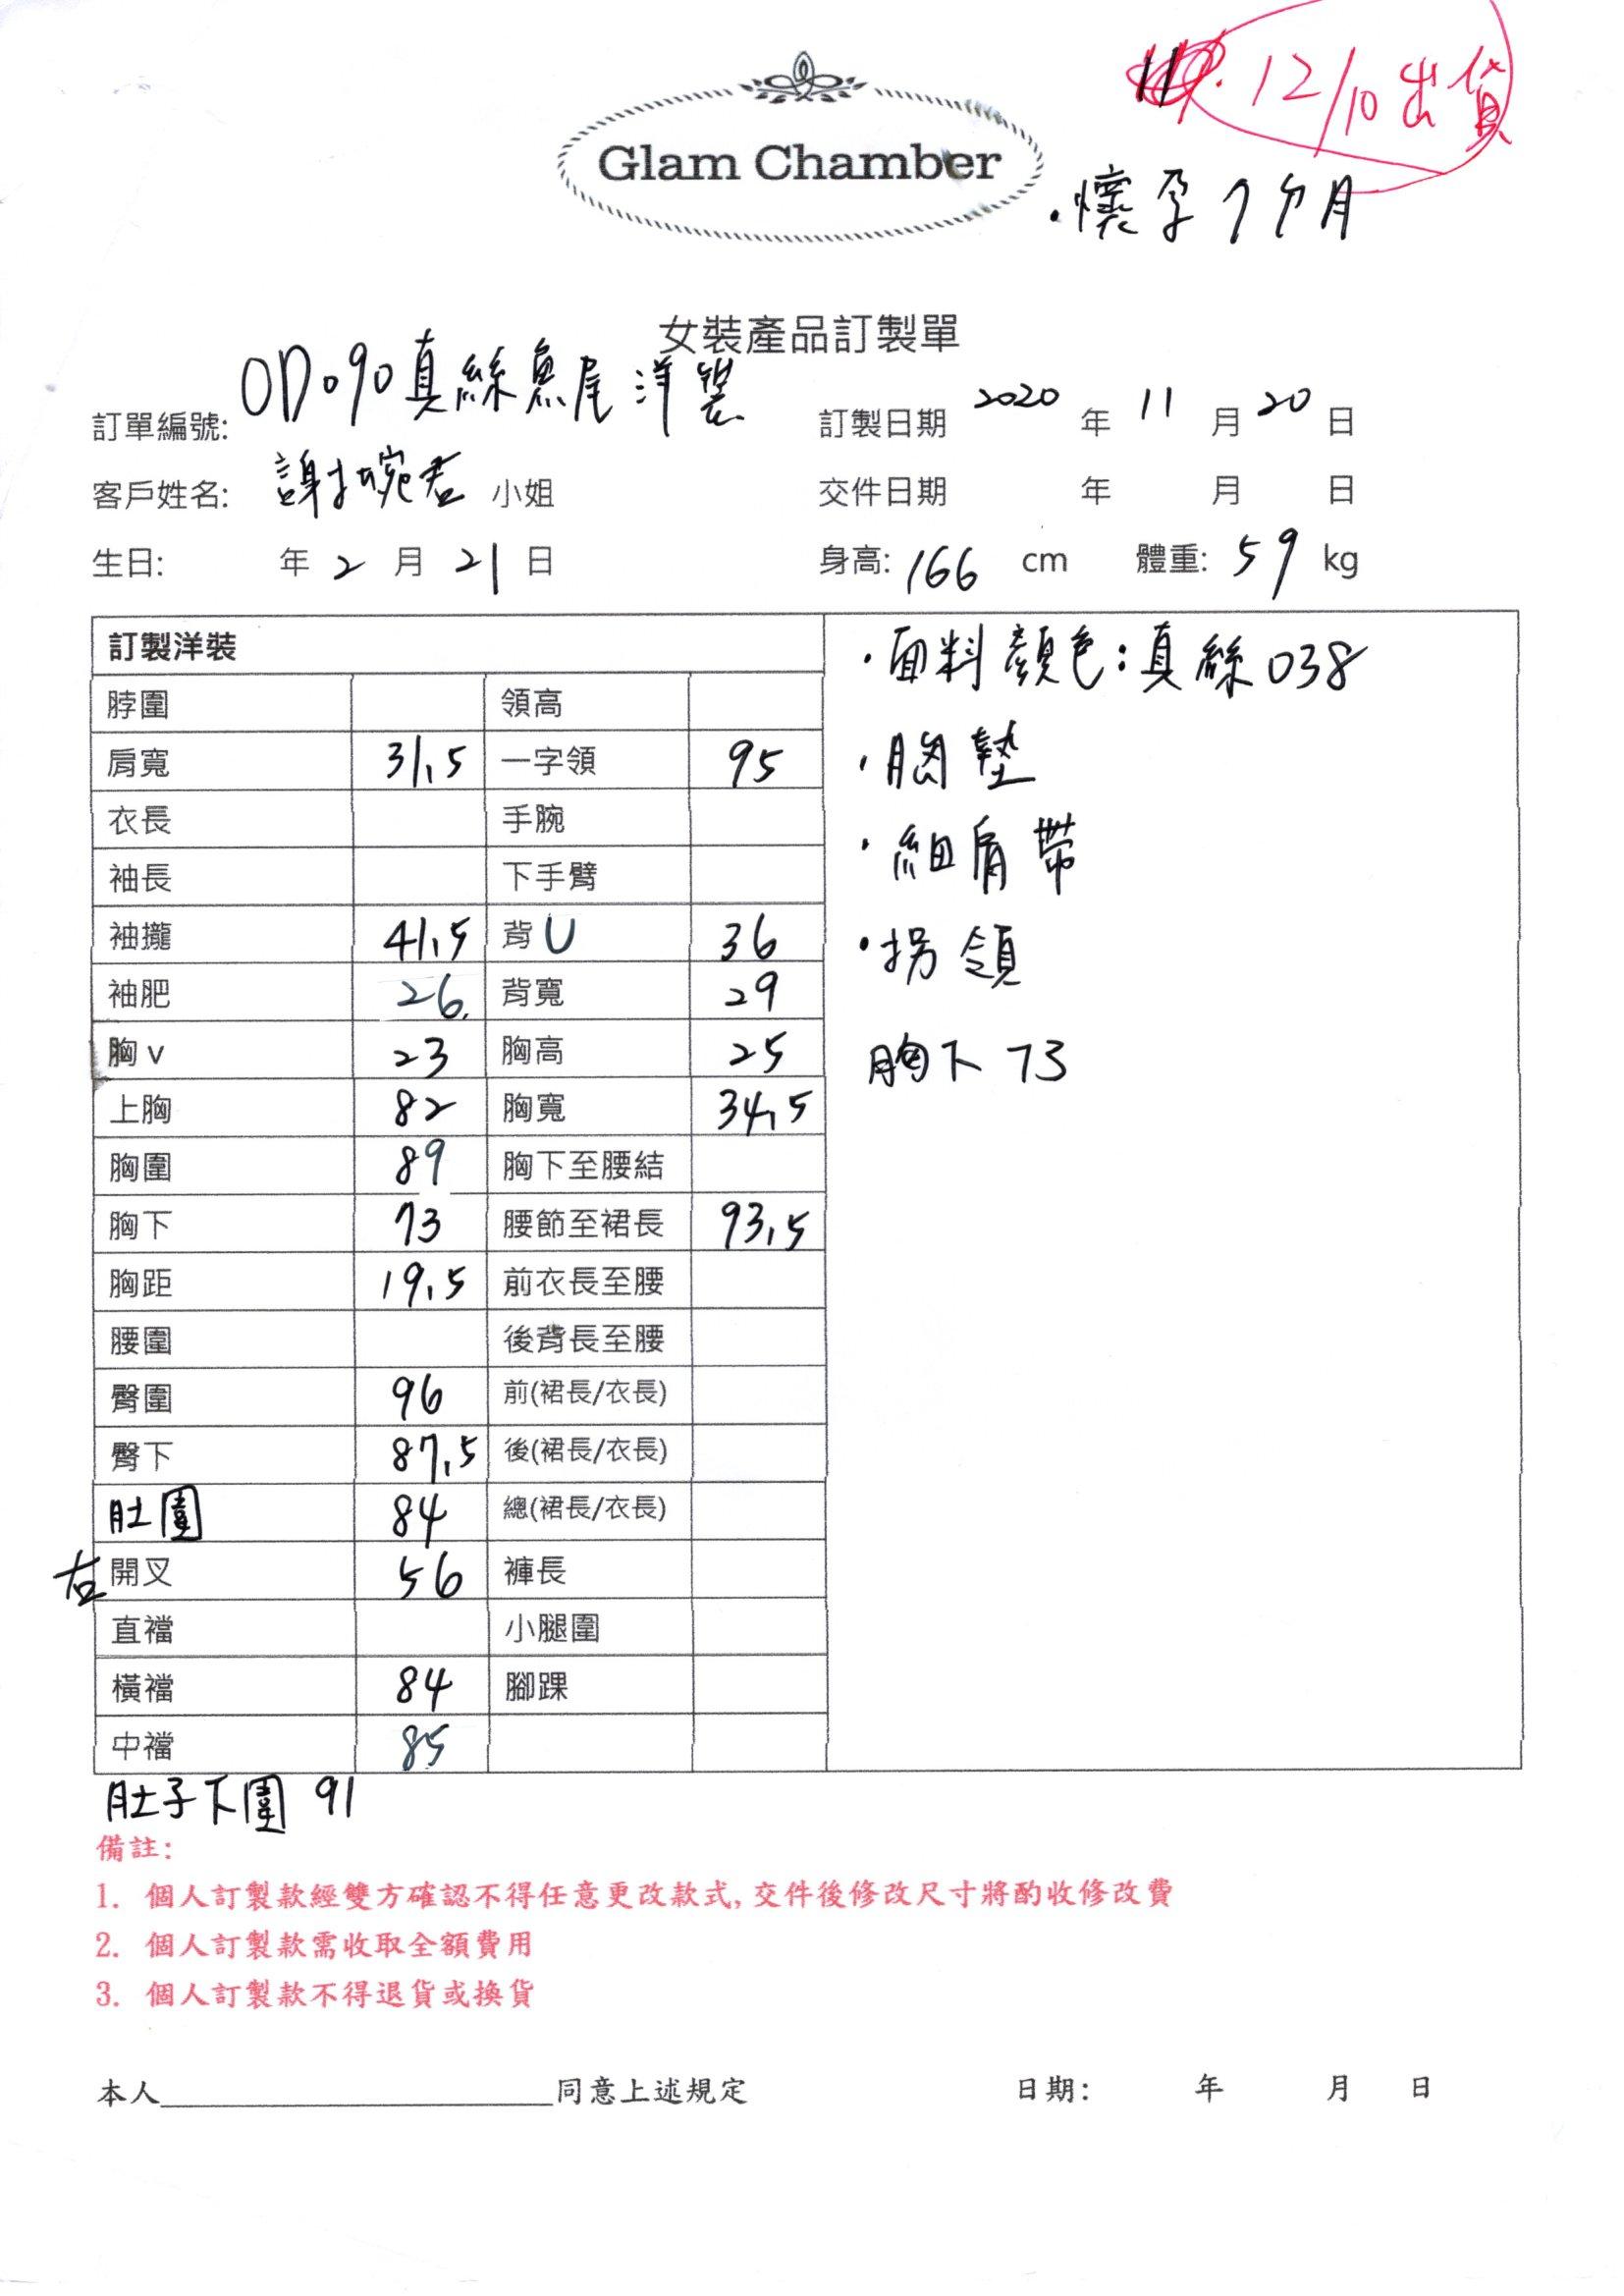 12/10出貨
Glam Chamber
·懷孕7個月
女裝產品訂製單
訂單編號: OD090真絲魚尾洋裝
訂製日期 2020 年 11 月 20 日
客戶姓名: 謝婉君 小姐
交件日期 年 月 日
生日: 年 2 月 21 日
身高: 166 cm 體重: 59 kg
訂製洋裝
脖圍 領高
肩寬 31.5 一字領 95
衣長 手腕
袖長 下手臂
袖攏 41.5 背U 36
袖肥 26. 背寬 29
胸v 23 胸高 25
上胸 82 胸寬 34.5
胸圍 89 胸下至腰結
胸下 73 腰節至裙長 93.5
胸距 19.5 前衣長至腰
腰圍 後背長至腰
臀圍 96 前(裙長/衣長)
臀下 87.5 後(裙長/衣長)
肚圍 84 總(裙長/衣長)
右 開叉 56 褲長
直襠 小腿圍
橫襠 84 腳踝
中襠 85
肚子下圍 91
·面料顏色:真絲038
·胸墊
·細肩帶
·拐領
胸下 73
備註:
1. 個人訂製款經雙方確認不得任意更改款式,交件後修改尺寸將酌收修改費
2. 個人訂製款需收取全額費用
3. 個人訂製款不得退貨或換貨
本人____________________同意上述規定
日期: 年 月 日